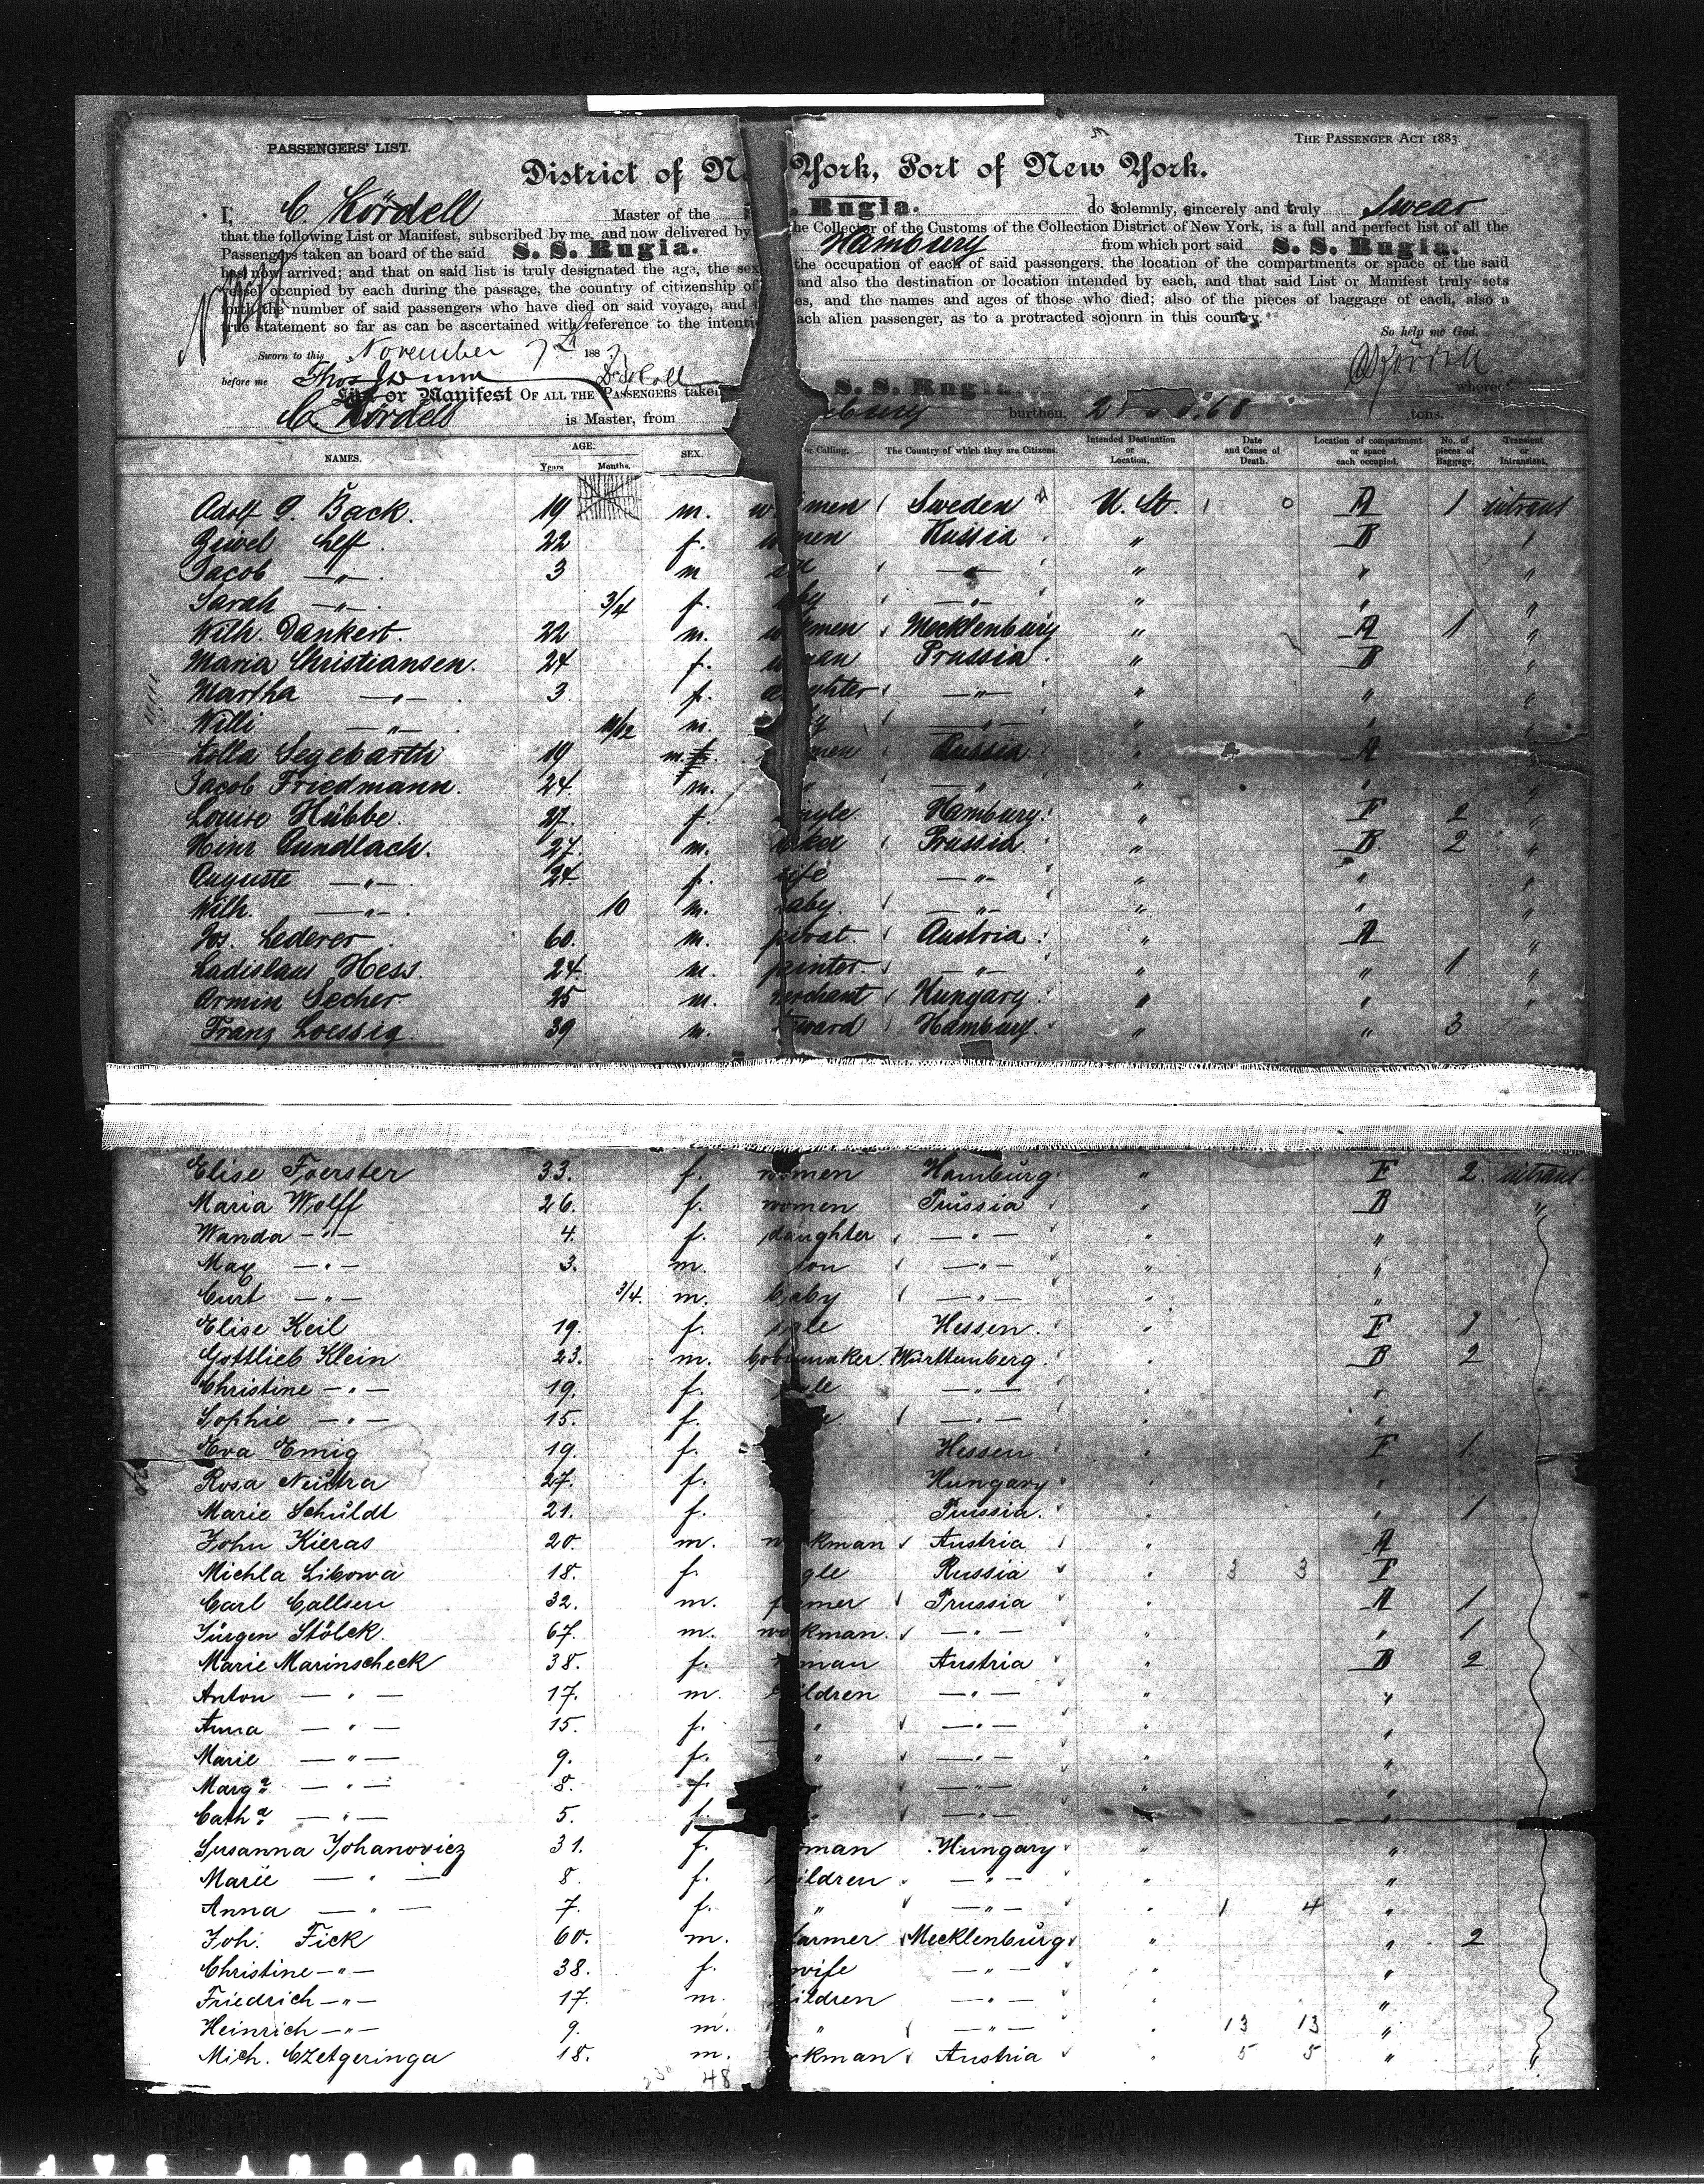 PASSENGERS' LIST.
THE PASSENGER ACT 1883.
District of N York, Port of New York.
I, C. Kördell Master of the Rugia. do solemnly, sincerely and truly Swear
that the following List or Manifest, subscribed by me, and now delivered by the Collector of the Customs of the Collection District of New York, is a full and perfect list of all the
Passengers taken an board of the said S. S. Rugia. Hamburg from which port said S. S. Rugia.
has now arrived; and that on said list is truly designated the age, the sex the occupation of each of said passengers, the location of the compartments or space of the said
vessel occupied by each during the passage, the country of citizenship of and also the destination or location intended by each, and that said List or Manifest truly sets
forth the number of said passengers who have died on said voyage, and the names and ages of those who died; also of the pieces of baggage of each, also a
true statement so far as can be ascertained with reference to the intenti each alien passenger, as to a protracted sojourn in this country.
So help me God.
Sworn to this November 7th 188
C Kördell
before me
List or Manifest OF ALL THE PASSENGERS taken S. S. Rugia. where
C. Kördell is Master, from burthen, tons.
NAMES. AGE. Years Months. SEX. or Calling. The Country of which they are Citizens. Intended Destination or Location. Date and Cause of Death. Location of compartment or space each occupied. No. of pieces of Baggage. Transient or Intransient.
Adolf G. Back. 19 m. men Sweden U. St. A 1 intrans
Leff. 22 f. men Russia " B "
Jacob —"—. 3 m —"— " " "
Sarah —"—. 3/4 f. by —"— " " "
Wilh. Dankert. 22 m. men Mecklenburg " A 1 "
Maria Christiansen. 24 f. man Prussia. " B "
Martha —"—. 3 f. ghter —"— " " "
Willi —"—. 11/12 m. —"— " " "
Segebarth 19 m. men Russia. " A "
Jacob Friedmann. 24. m. " —"— " " "
Louise Hübbe. 27. f. gle. Hamburg. " F 2 "
Heinr Gundlach. 27. m. Prussia. " B. 2 "
Auguste —"—. 24. f. ife —"— " " "
Wilh. —"—. 10 m. aby. —"— " " "
Jos. Lederer. 60. m. privat. Austria. " A "
Ladislaus Hess. 24. m. —"— " " 1 "
Armin Secher. 25 m. merchant Hungary. " " "
Franz Loessig. 39 m. ward Hamburg " " 3
Elise Foerster 33. f. women Hamburg. " F 2. intrans.
Maria Wolff 26. f. women Prussia " B "
Wanda —"— 4. f. daughter —"— " "
Max —"— 3. m. son —"— " "
Curt —"— 3/4. m. baby —"— " "
Elise Keil 19. f. Hessen. " F 1.
Gottlieb Klein 23. m. maker. Württemberg. " B 2
Christine —"— 19. f. le —"— " "
Sophie —"— 15. f. —"— " "
Eva Emig 19. f. Hessen " F 1.
Rosa Neutra 27. f. Hungary " "
Marie Schuldt 21. f. Prussia. " " 1
John Kieras 20. m. kman Austria " A
Michla Libowa 18. f. gle Russia " 3 3 F
Carl Callsen 32. m. farmer Prussia " A 1
Jürgen Stölck. 67. m. workman. —"— " " 1
Marie Marinscheck 38. f. man Austria " B 2
Anton —"— 17. m. ildren —"— " "
Anna —"— 15. f. " —"— " "
Marie —"— 9. f. " —"— " "
Marga. —"— 8. f. " —"— " "
Catha. —"— 5. f. " —"— " "
Susanna Johanovicz 31. f. man Hungary " "
Marie —"— 8. f. ildren —"— " "
Anna —"— 7. f. " —"— " 1 4 "
Joh. Fick 60. m. farmer Mecklenburg " " 2
Christine —"— 38. f. wife —"— " "
Friedrich —"— 17. m. ildren —"— " "
Heinrich —"— 9. m. " —"— " 13 13 "
Mich. Czetgeringa 18. m. kman Austria " 5 5 " "
48